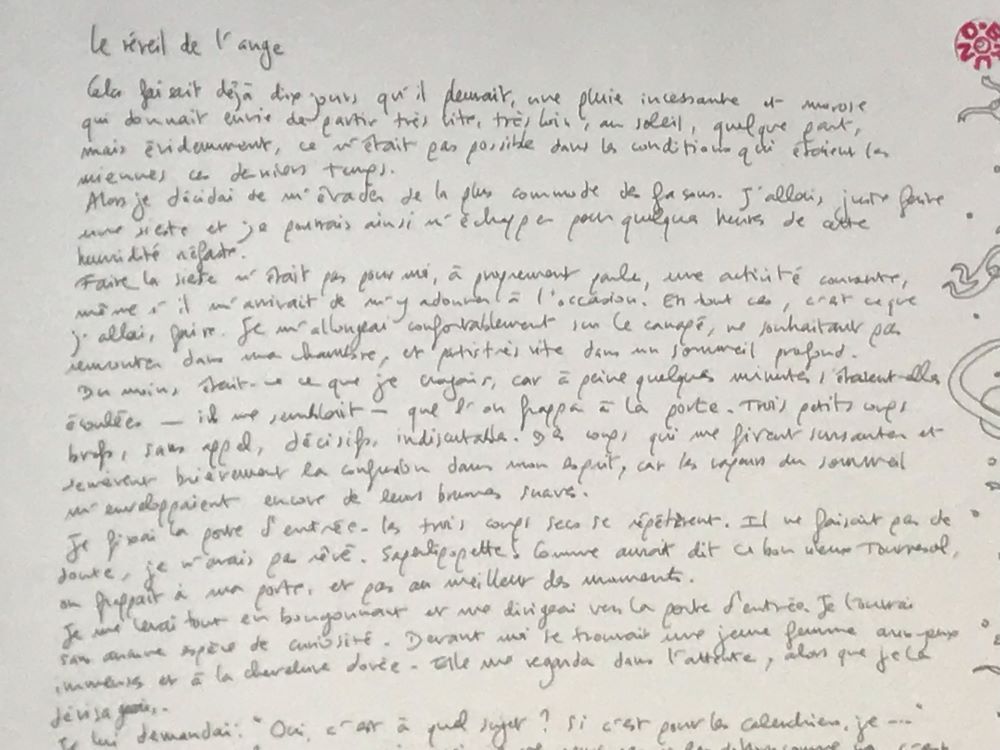 Le réveil de l'ange
Cela faisait déjà dix jours qu'il pleuvait, une pluie incessante et morose
qui donnait envie de partir très vite, très loin, au soleil, quelque part,
mais évidemment, ce n'était pas possible dans les conditions qui étaient les
miennes ces derniers temps.
Alors je décidai de m'évader de la plus commode des façons. J'allais juste faire
une sieste et je pourrais ainsi m'échapper pour quelques heures de cette
humidité néfaste.
Faire la sieste n'était pas pour moi, à proprement parler, une activité courante,
même s'il m'arrivait de m'y adonner à l'occasion. En tout cas, c'est ce que
j'allais faire. Je m'allongeai confortablement sur le canapé, ne souhaitant pas
remonter dans ma chambre, et partis très vite dans un sommeil profond.
Du moins, était-ce ce que je croyais, car à peine quelques minutes s'étaient-elles
écoulées — il me semblait — que l'on frappa à la porte. Trois petits coups
brefs, sans appel, décisifs, indiscutables. Des coups qui me firent sursauter et
semèrent brièvement la confusion dans mon esprit, car les vapeurs du sommeil
m'enveloppaient encore de leurs brumes suaves.
Je fixai la porte d'entrée. Les trois coups secs se répétèrent. Il ne faisait pas de
doute, je n'avais pas rêvé. Saperlipopette ! Comme aurait dit ce bon vieux Tournesol,
on frappait à ma porte, et pas au meilleur des moments.
Je me levai tout en bougonnant et me dirigeai vers la porte d'entrée. Je l'ouvrai
sans aucune espèce de curiosité. Devant moi se trouvait une jeune femme aux yeux
immenses et à la chevelure dorée. Elle me regarda dans l'attente, alors que je la
dévisageais.
Je lui demandai: "Oui, c'est à quel sujet ? Si c'est pour les calendriers, je ---"